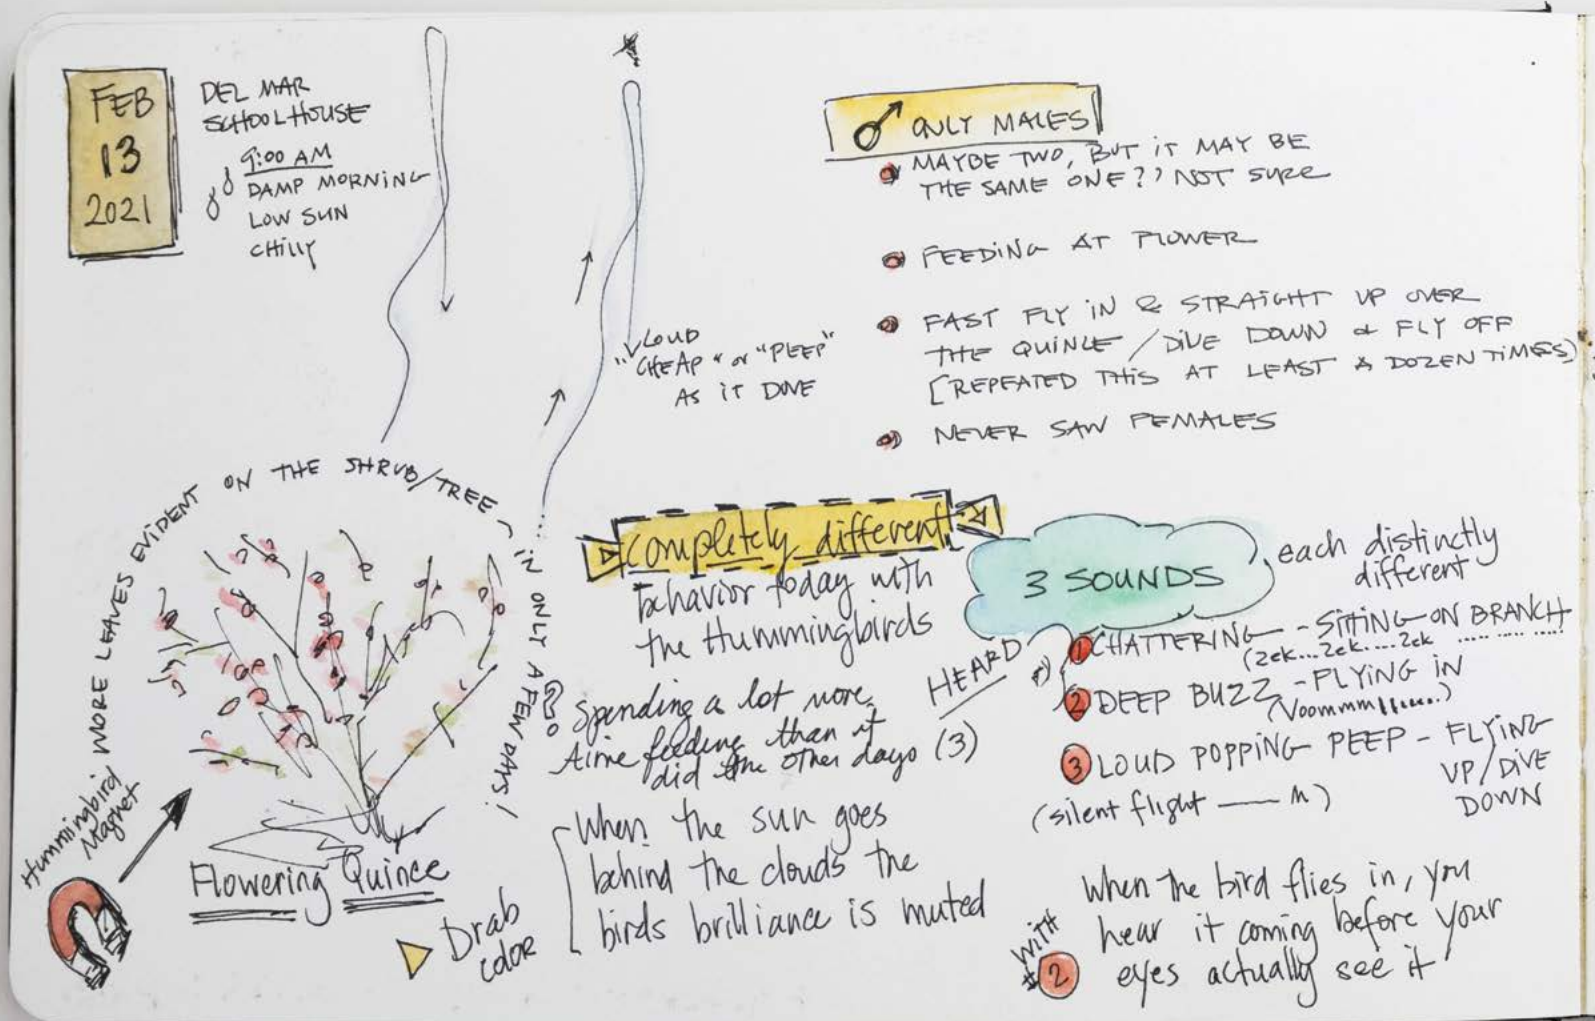 FEB
13
2021
DEL MAR
SCHOOLHOUSE
9:00 AM
DAMP MORNING
LOW SUN
CHILLY
LOUD
"CHEAP" or "PEEP"
AS IT DOVE
♂ ONLY MALES
MAYBE TWO, BUT IT MAY BE
THE SAME ONE?? NOT SURE
FEEDING AT FLOWER
FAST FLY IN & STRAIGHT UP OVER
THE QUINCE / DIVE DOWN & FLY OFF
[REPEATED THIS AT LEAST A DOZEN TIMES)
NEVER SAW FEMALES
MORE LEAVES EVIDENT ON THE SHRUB/TREE - IN ONLY A FEW DAYS!
Hummingbird
Magnet
Flowering Quince
completely different
behavior today with
the Hummingbirds
?
Spending a lot more
time feeding than it
did the other days (3)
Drab
color
When the sun goes
behind the clouds the
birds brilliance is muted
HEARD
3 SOUNDS
each distinctly
different
1 CHATTERING - SITTING ON BRANCH
(zek...zek....zek ..... ... ....
2 DEEP BUZZ - FLYING IN
(Voommm.......)
3 LOUD POPPING PEEP - FLYING
UP/DIVE
DOWN
(silent flight — M)
WITH
#2
When the bird flies in, you
hear it coming before your
eyes actually see it